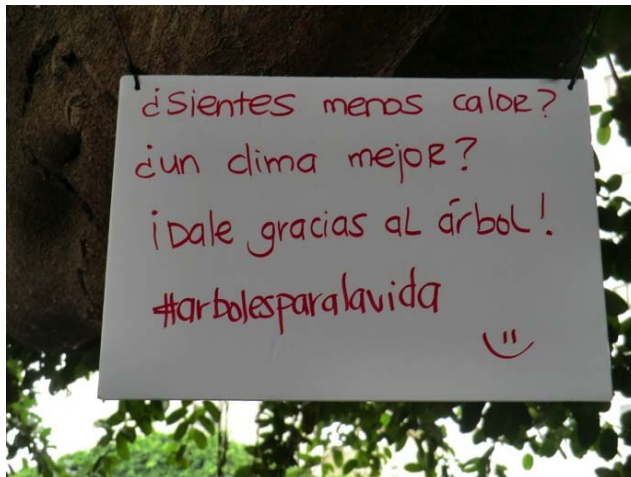 ¿Sientes menos calor?
¿un clima mejor?
¡Dale gracias al árbol!
#arbolesparalavida